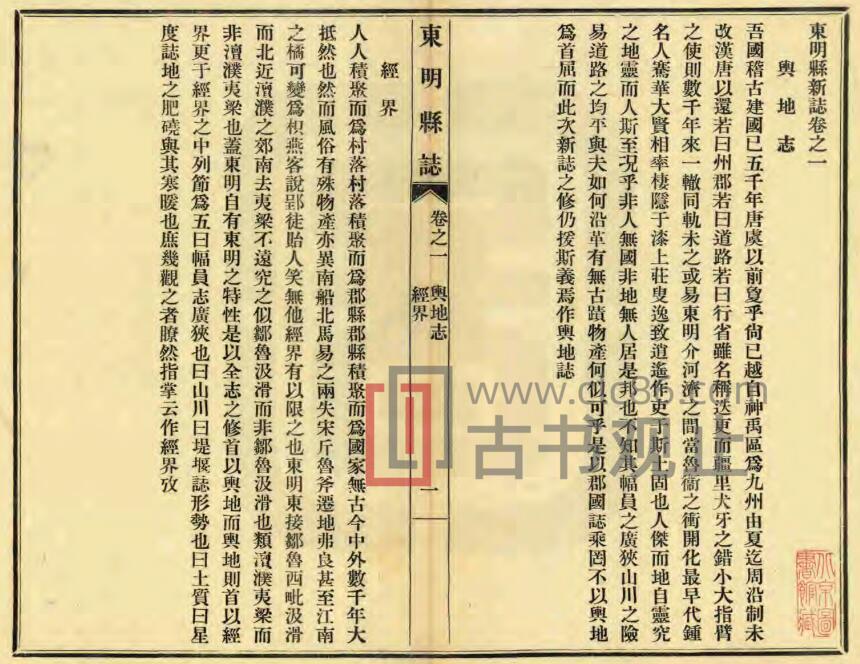 東明縣新誌卷之一
輿地志
吾國稽古建國已五千年唐虞以前敻乎尙已越自神禹區爲九州由夏迄周沿制未
改漢唐以還若曰州郡若曰道路若曰行省雖名稱迭更而疆里犬牙之錯小大指臂
之使則數千年來一轍同軌未之或易東明介河濟之間當魯衞之衝開化最早代鍾
名人騫華大賢相率棲隱于漆上莊叟逸致逍遙作吏于斯土固也人傑而地自靈究
之地靈而人斯至况乎非人無國非地無人居是邦也不知其幅員之廣狹山川之險
易道路之均平與夫如何沿革有無古蹟物產何似可乎是以郡國誌乘罔不以輿地
爲首屈而此次新誌之修仍援斯義焉作輿地誌
東明縣誌
卷之一
輿地志
經界
一
經界
人人積聚而爲村落村落積聚而爲郡縣郡縣積聚而爲國家無古今中外數千年大
抵然也然而風俗有殊物產亦異南船北馬易之兩失宋斤魯斧遷地弗良甚至江南
之橘可變爲枳燕客說郢徒貽人笑無他經界有以限之也東明東接鄒魯西毗汲滑
而北近澶濮之郊南去夷梁不遠究之似鄒魯汲滑而非鄒魯汲滑也類澶濮夷梁而
非澶濮夷梁也蓋東明自有東明之特性是以全志之修首以輿地而輿地則首以經
界更于經界之中列節爲五曰幅員志廣狹也曰山川曰堤堰誌形勢也曰土質曰星
度誌地之肥磽與其寒暖也庶幾觀之者瞭然指掌云作經界攷
www.
.com
古书观止